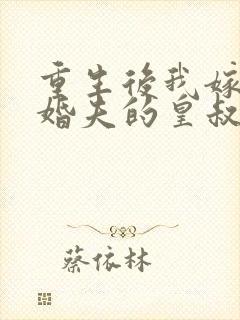 重生後我嫁
婚夫的皇叔
蔡依林